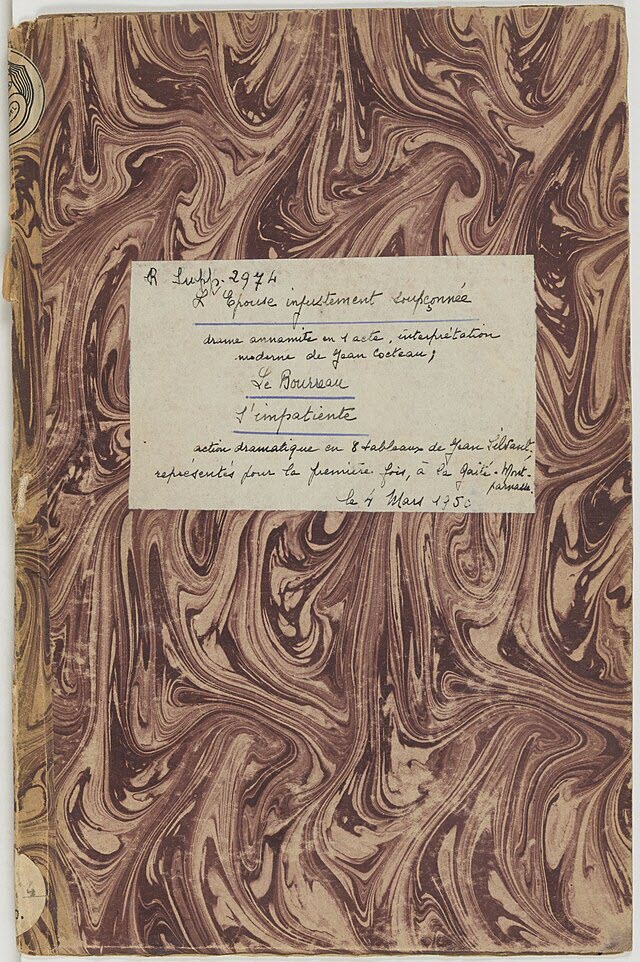 R Supp. 2974
L'Epouse injustement soupçonnée
drame annamite en 1 acte, interprétation
moderne de Jean Cocteau ;
Le Bourreau
L'impatiente
action dramatique en 8 tableaux de Jean
représentés pour la première fois, à la Gaîté-Mont-
parnasse.
le 4 Mars 1950